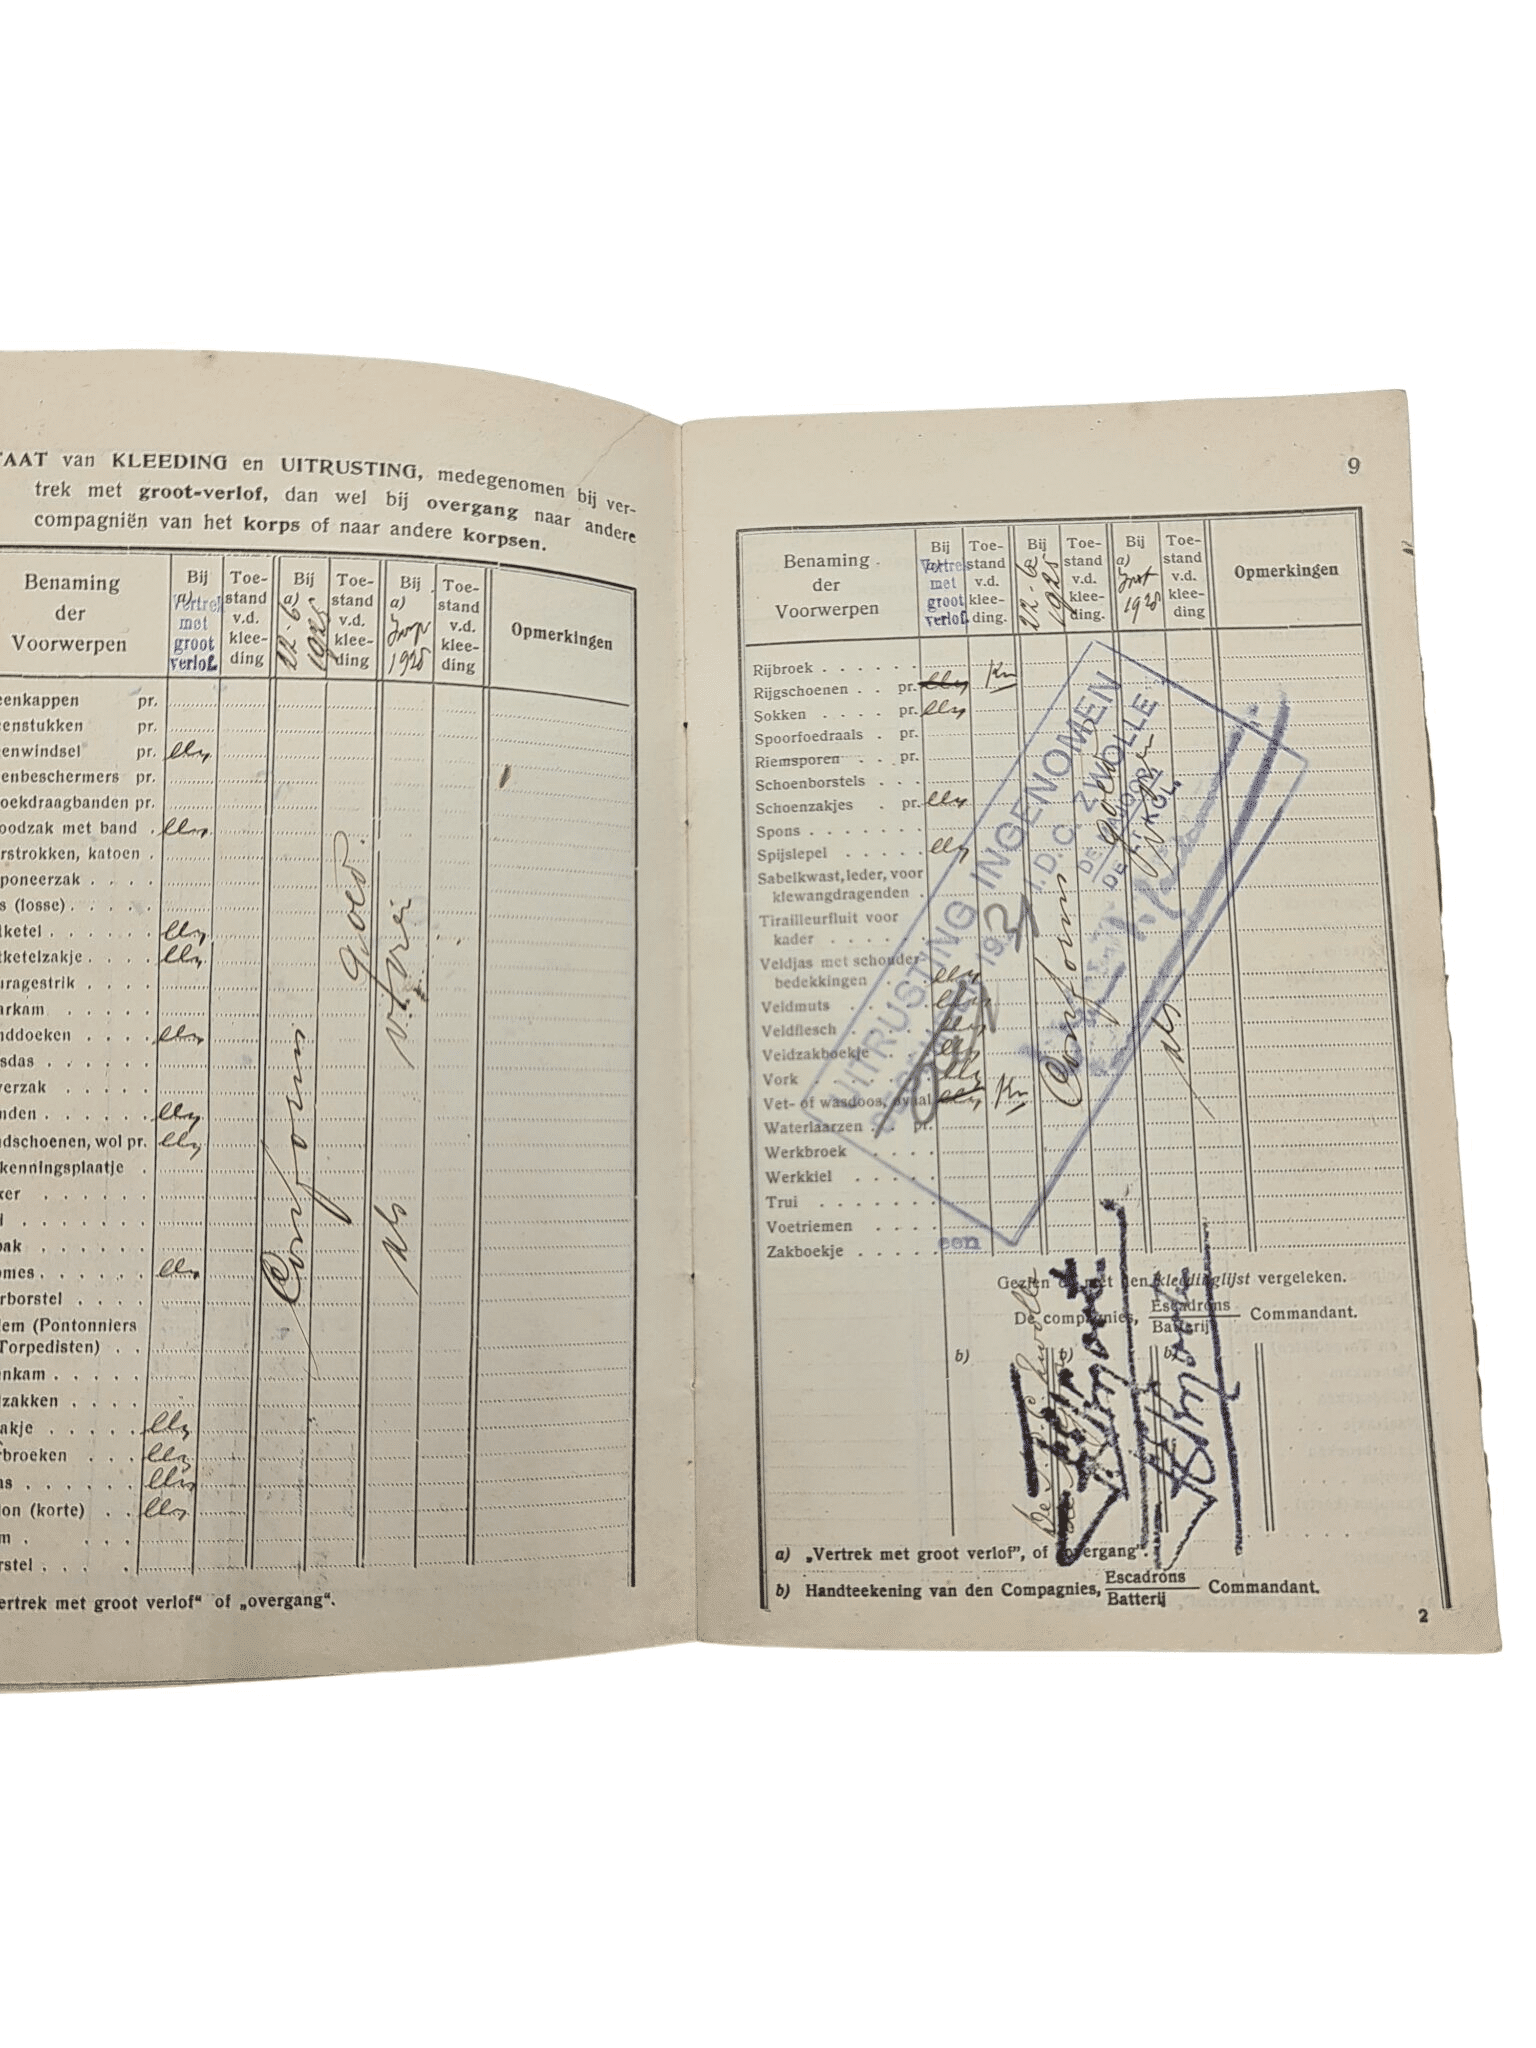 TAAT van KLEEDING en UITRUSTING, medegenomen bij ver-
trek met groot-verlof, dan wel bij overgang naar andere
compagniën van het korps of naar andere korpsen.
Benaming
der
Voorwerpen
Bij
a)
Vertrek
met
groot
verlof.
Toe-
stand
v.d.
klee-
ding
Bij
a)
22-6
1925
Toe-
stand
v.d.
klee-
ding
Bij
a)
1928
Toe-
stand
v.d.
klee-
ding
Opmerkingen
eenkappen pr.
enstukken pr.
enwindsel pr.
enbeschermers pr.
oekdraagbanden pr.
oodzak met band
rstrokken, katoen
poneerzak
s (losse)
tketel
tketelzakje
uragestrik
arkam
nddoeken
sdas
verzak
nden
dschoenen, wol pr.
kenningsplaatje
ker
l
pak
omes
rborstel
lem (Pontonniers
Torpedisten)
nkam
lzakken
akje
rbroeken
as
lon (korte)
m
rstel
Conform
goed
als voren
ertrek met groot verlof" of „overgang".
9
Benaming
der
Voorwerpen
Bij
a)
Vertrek
met
groot
verlof.
Toe-
stand
v.d.
klee-
ding.
Bij
a)
22-6
1925
Toe-
stand
v.d.
klee-
ding.
Bij
a)
1928
Toe-
stand
v.d.
klee-
ding
Opmerkingen
Rijbroek
Rijgschoenen pr.
Sokken pr.
Spoorfoedraals pr.
Riemsporen pr.
Schoenborstels
Schoenzakjes pr.
Spons
Spijslepel
Sabelkwast, leder, voor
klewangdragenden
Tirailleurfluit voor
kader
Veldjas met schouder-
bedekkingen
Veldmuts
Veldflesch
Veldzakboekje
Vork
Vet- of wasdoos, ovaal
Waterlaarzen pr.
Werkbroek
Werkkiel
Trui
Voetriemen
Zakboekje een
Conform
goed
als voren
UITRUSTING INGENOMEN
1931 I.D.C. ZWOLLE
DE MAJOOR
Gezien en met den kleedinglijst vergeleken.
De compagnies, Escadrons Commandant.
Batterij
b) b) b)
a) „Vertrek met groot verlof", of „overgang".
b) Handteekening van den Compagnies, Escadrons Commandant.
Batterij
2